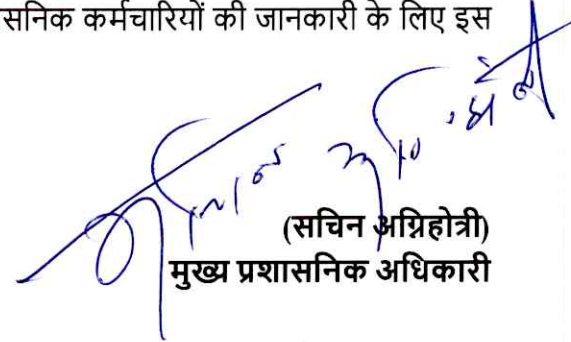 सनिक कर्मचारियों की जानकारी के लिए इस
(सचिन अग्निहोत्री)
मुख्य प्रशासनिक अधिकारी